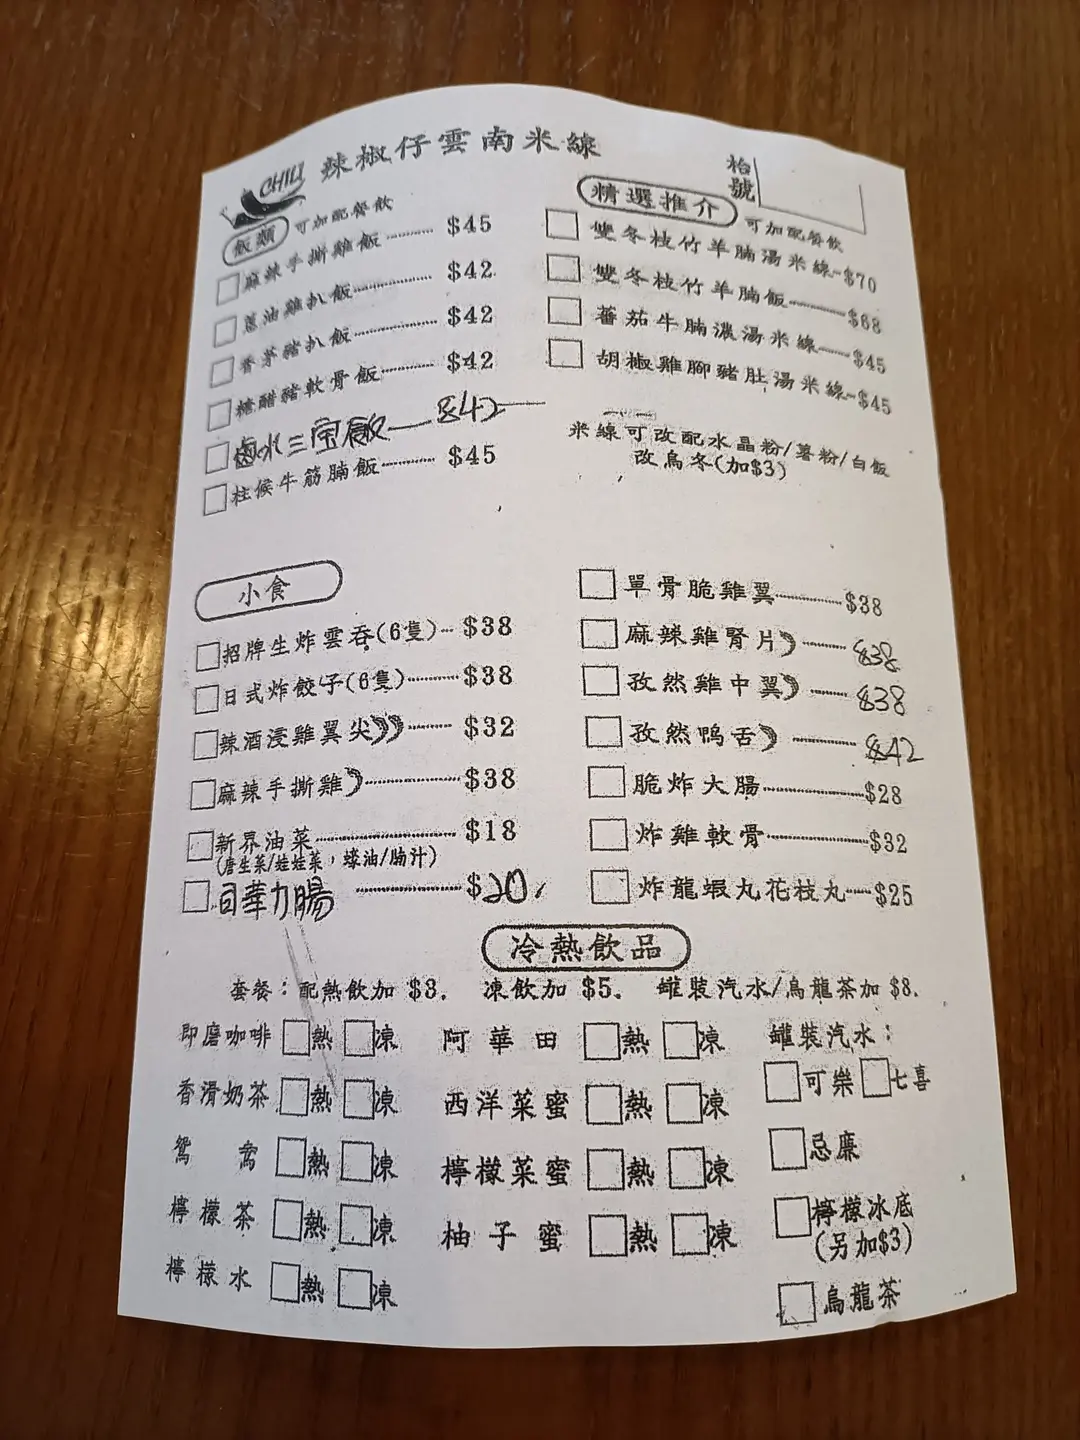 CHILI 辣椒仔雲南米線
枱號
飯類 可加配餐飲
麻辣手撕雞飯 $45
蔥油雞扒飯 $42
香茅豬扒飯 $42
糖醋豬軟骨飯 $42
鹵水三宝飯 $42
柱侯牛筋腩飯 $45
精選推介 可加配餐飲
雙冬枝竹羊腩湯米線 $70
雙冬枝竹羊腩飯 $68
蕃茄牛腩濃湯米線 $45
胡椒雞腳豬肚湯米線 $45
米線可改配水晶粉/薯粉/白飯
改烏冬(加$3)
小食
招牌生炸雲吞(6隻) $38
日式炸餃子(6隻) $38
辣酒浸雞翼尖 $32
麻辣手撕雞 $38
新界油菜 $18
(唐生菜/娃娃菜，蠔油/腩汁)
$20
單骨脆雞翼 $38
麻辣雞腎片 $38
孜然雞中翼 $38
孜然鴨舌 $42
脆炸大腸 $28
炸雞軟骨 $32
炸龍蝦丸花枝丸 $25
冷熱飲品
套餐：配熱飲加 $3. 凍飲加 $5. 罐裝汽水/烏龍茶加 $8.
即磨咖啡 熱 凍
香滑奶茶 熱 凍
鴛鴦 熱 凍
檸檬茶 熱 凍
檸檬水 熱 凍
阿華田 熱 凍
西洋菜蜜 熱 凍
檸檬菜蜜 熱 凍
柚子蜜 熱 凍
罐裝汽水：
可樂 七喜
忌廉
檸檬冰底
(另加$3)
烏龍茶